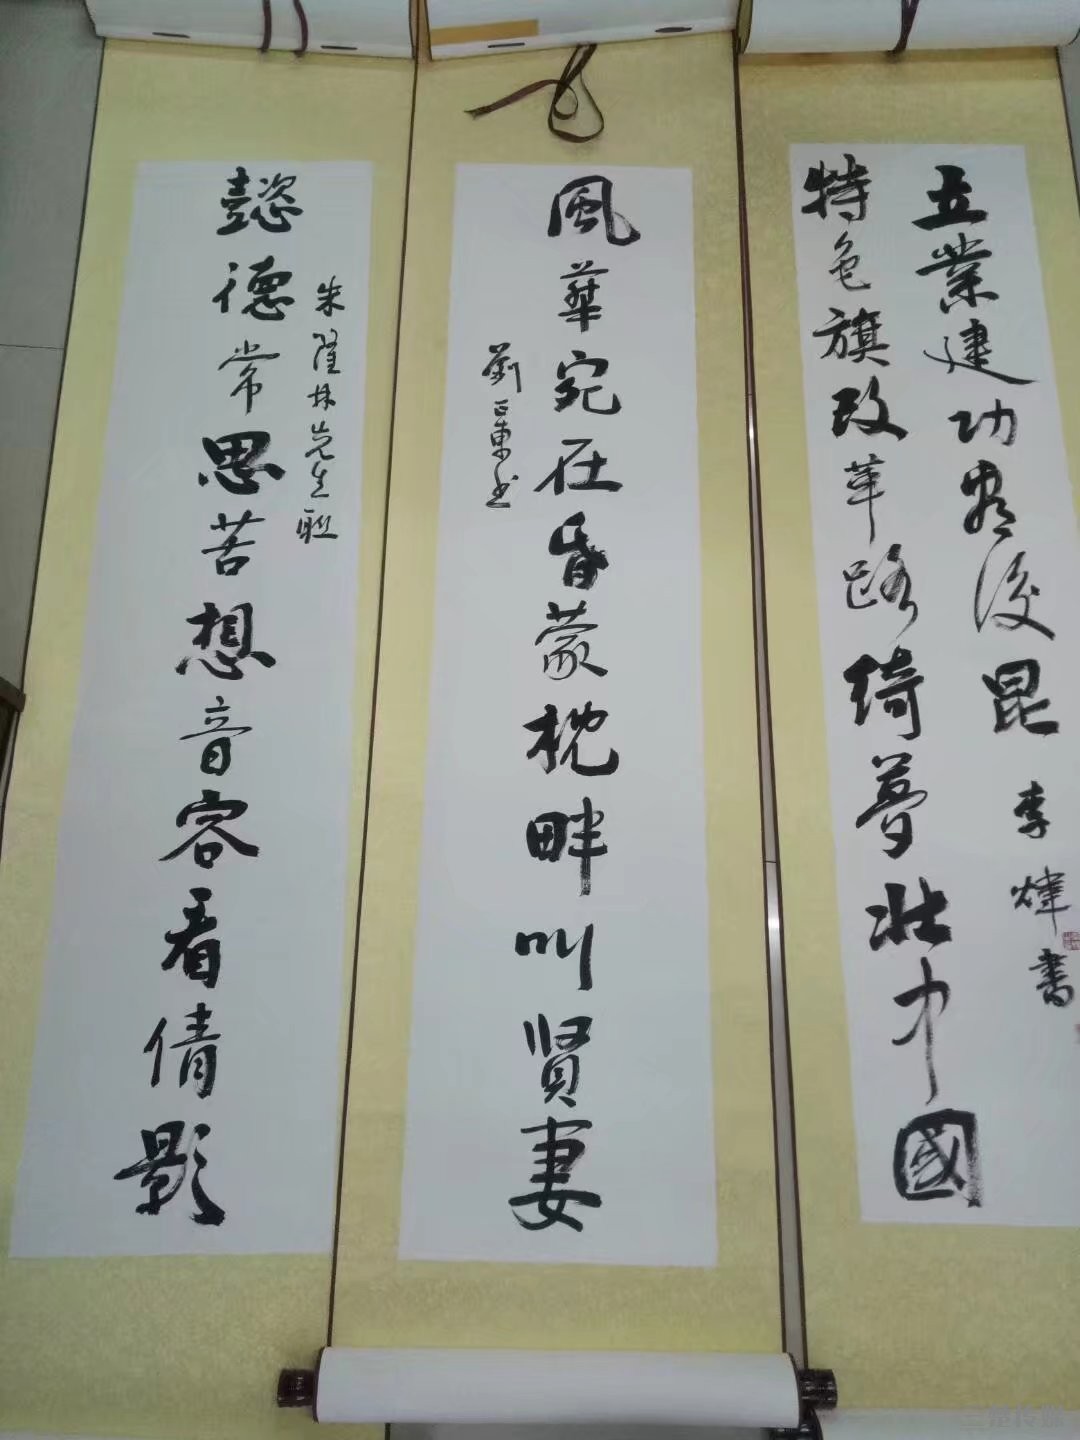 立業建功後昆
特色旗改革路綺夢壯中國
李煒書
風華宛在昏蒙枕畔叫賢妻
劉正東书
朱隆林先生联
懿德常思苦想音容看倩影